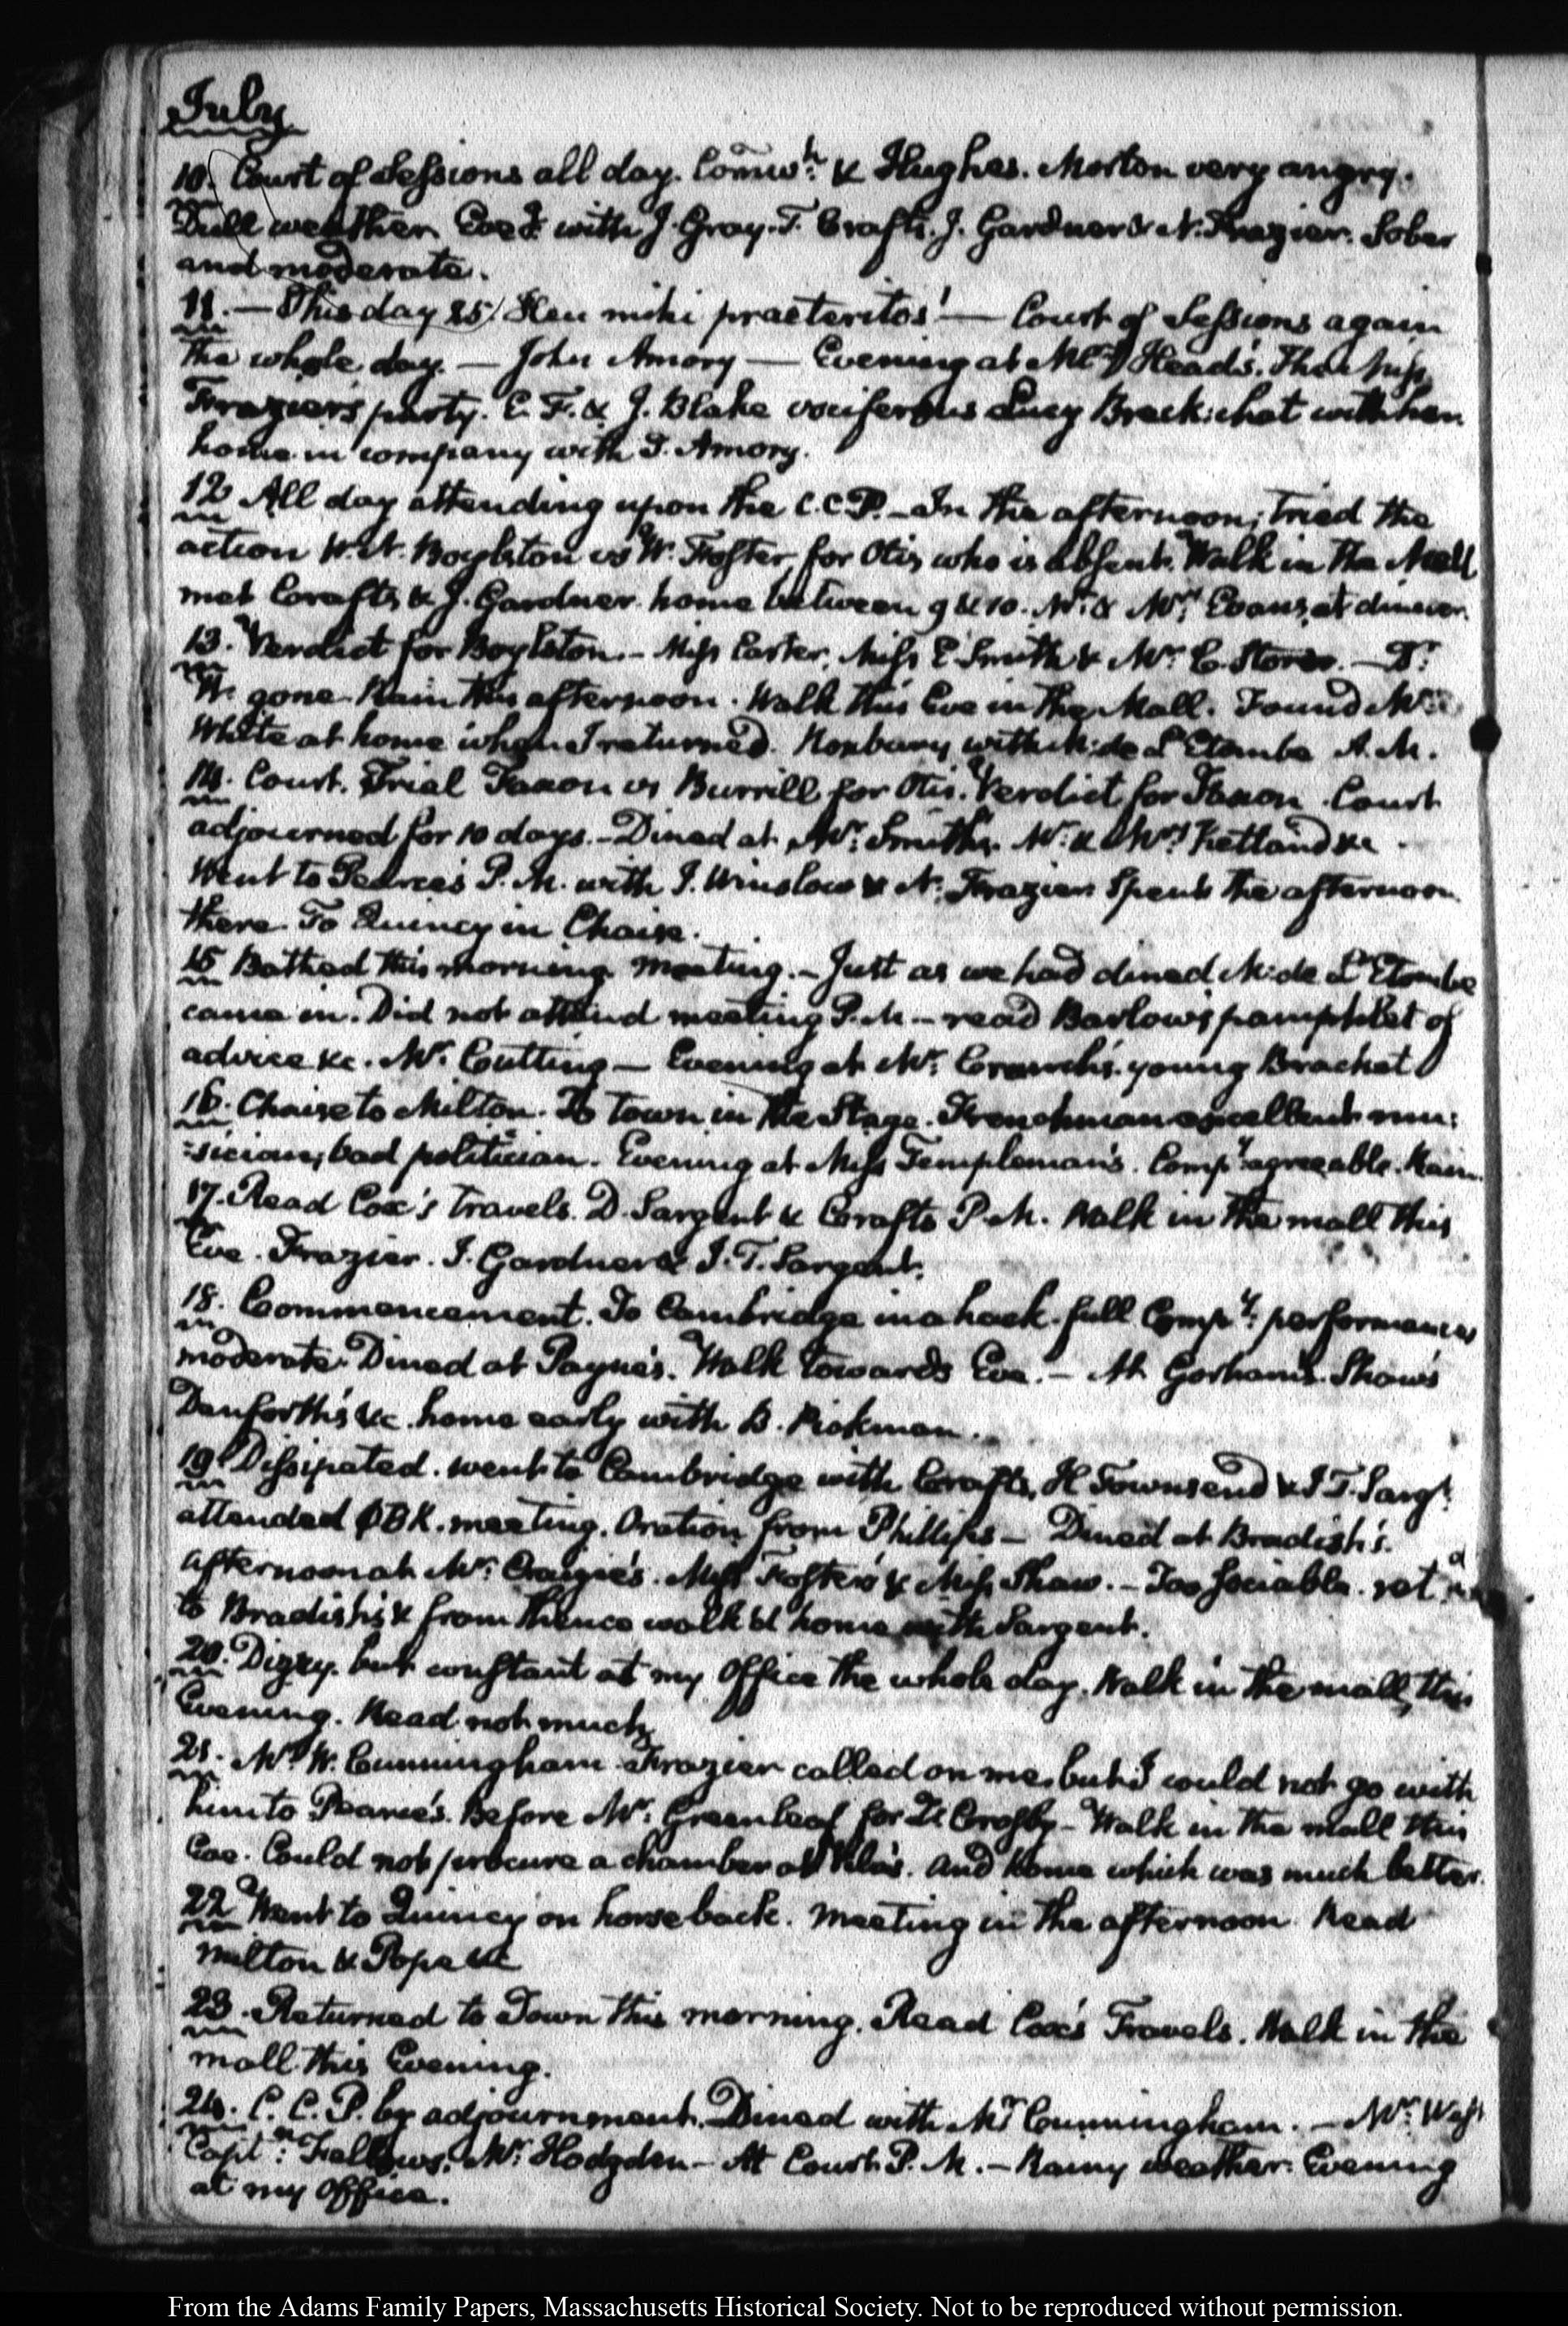 July
10. Court of Sessions all day. Comw.h & Hughes. Morton very angry.
Dull weather Eve.g with J. Gray. T. Crafts. J. Gardner & N. Frazier. Sober
and moderate.
11. — This day 25. Heu mihi praeteritos! — Court of Sessions again
the whole day. — John Amory — Evening at Mrs Head's. The Miss
Frazier's party. E. F. & J. Blake vociferous Lucy Breck: chat with her
home in company with J. Amory.
12 All day attending upon the C.C.P. — In the afternoon, tried the
action W. N. Boylston vs W. Foster, for Otis who is absent. Walk in the Mall
met Crafts & J. Gardner. home between 9 & 10. Mr. & Mrs. Evans, at dinner.
13. Verdict for Boylston. — Miss Carter, Miss E. Smith & Mr. C. Storer. — Dr.
W. gone. Rain this afternoon. Walk this Eve in the Mall. Found Mr.
White at home when I returned. Roxbury with M: de L'Etombe A.M.
14. Court. Trial Faxon vs Burrill for Otis. Verdict for Faxon. Court
adjourned for 10 days. — Dined at Mr: Smith's. Mr. & Mrs Ketland &c
Went to Pearce's P.M. with J. Winslow & N. Frazier. Spent the afternoon
there. To Quincy in Chaise.
15 Bathed this morning. meeting. — Just as we had dined M: de L'Etombe
came in. Did not attend meeting P.M — read Barlow's pamphlet of
advice &c. Mr. Cutting — Evening at Mr: Cranch's. young Bracket
16. Chaise to Milton. To town in the Stage. Frenchman excellent mu:
:sician; bad politician. Evening at Miss Templeman's. Comp.y agreeable. Rain.
17. Read Cox's travels. D. Sargent & Crafts P.M. Walk in the mall this
Eve. Frazier. J. Gardner & J. T. Sargent.
18. Commencement. To Cambridge in a hack. full Comp.y: performances
moderate. Dined at Payne's. Walk towards Eve. — At Gorham's. Shaw's
Danforth's &c. home early with B. Pickman.
19. Dissipated. went to Cambridge with Crafts, H Townsend & J T. Sarg.t
attended ΦBK. meeting. Oration from Phillips — Dined at Bradish's.
afternoon at Mr: Craigie's. Miss Foster's & Miss Shaw. — Too sociable. ret.d
to Bradish's & from thence walk'd home with Sargent.
20. Dizzy. but constant at my Office the whole day. Walk in the mall, this
Evening. Read not much.
21. Mr. W. Cunningham. Frazier called on me, but I could not go with
him to Pearce's. Before Mr: Greenleaf for Crosby — Walk in the mall this
Eve. Could not procure a chamber at And home which was much better.
22 Went to Quincy on horseback. meeting in the afternoon. Read
Milton & Pope &c
23. Returned to Town this morning. Read Cox's Travels. Walk in the
mall this Evening.
24. C. C. P. by adjournment. Dined with Mr Cunningham. — Mr. West
Capt.n Fellows. Mr: Hodgdon — At Court P.M. — Rainy weather. Evening
at my Office.
From the Adams Family Papers, Massachusetts Historical Society. Not to be reproduced without permission.